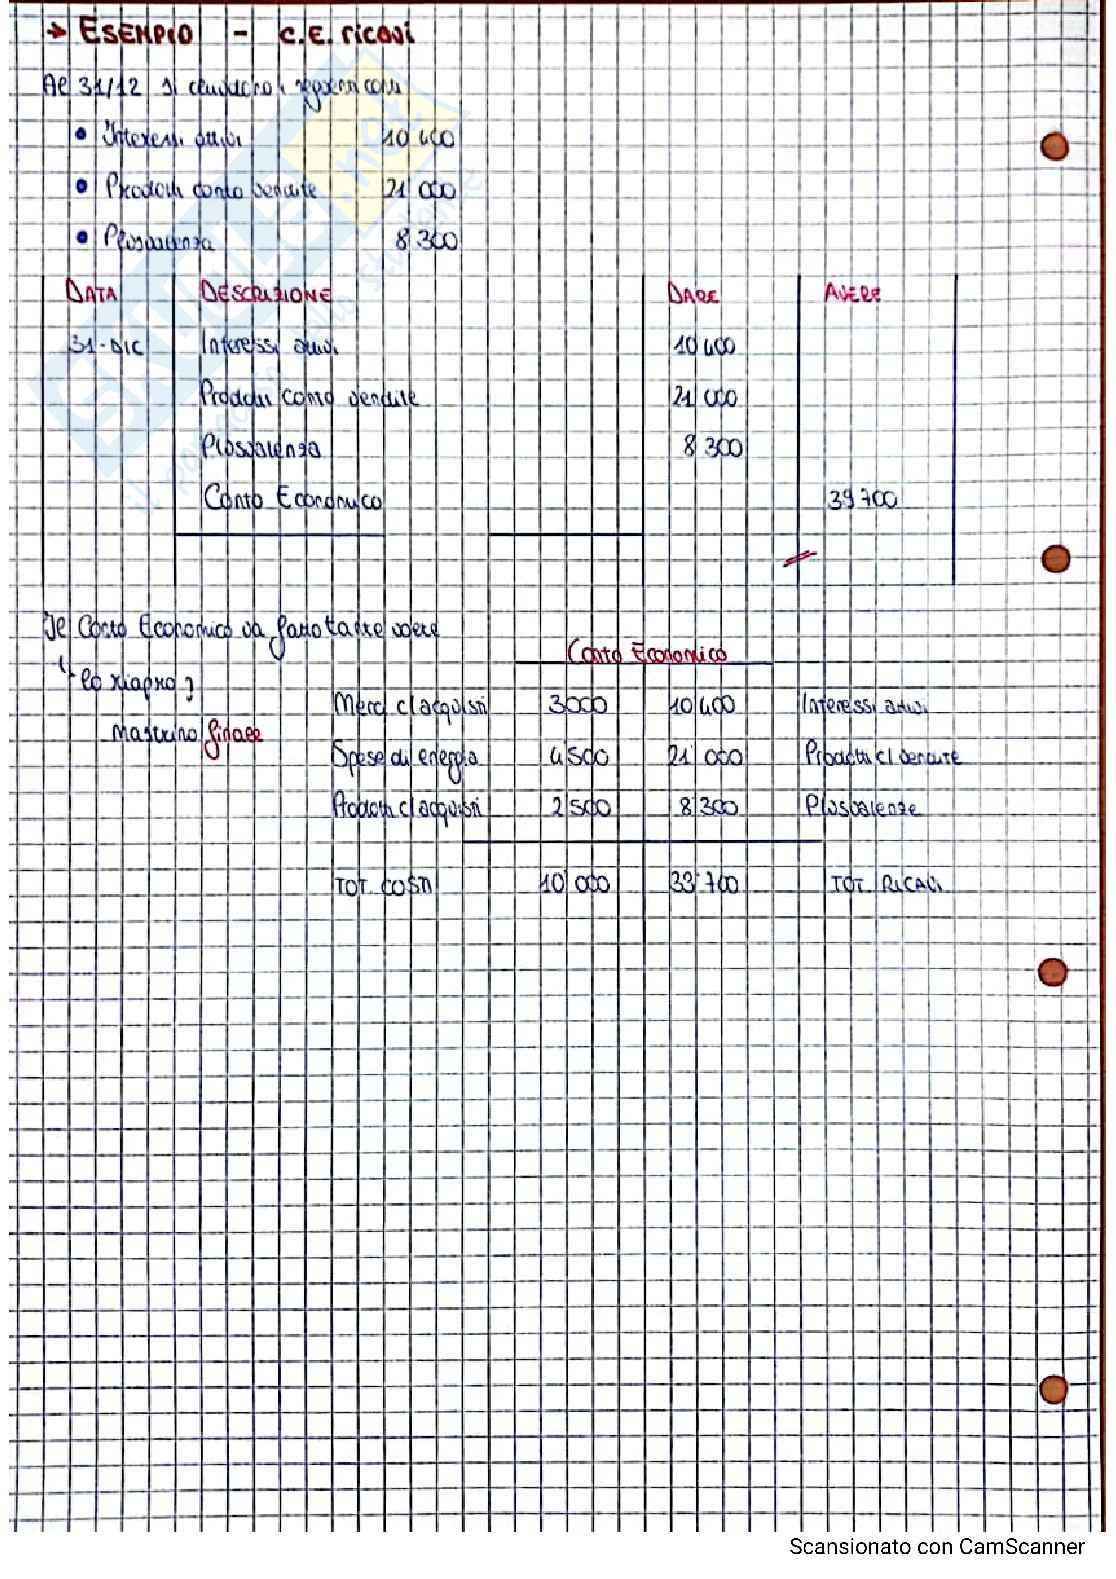 → ESEMPIO - C.E. ricavi
Al 31/12 si chiudono i seguenti conti
• Interessi attivi 10 400
• Prodotti conto vendite 21 000
• Plusvalenza 8 300
DATA DESCRIZIONE DARE AVERE
31-DIC Interessi attivi 10 400
Prodotti conto vendite 21 000
Plusvalenza 8 300
Conto Economico 39 700
Il Conto Economico va fatto tante volte
lo riapro
mastrino finale
Conto Economico
Merci c/acquisti 3000 10 400 Interessi attivi
Spese di energia 4 500 21 000 Prodotti c/vendite
Prodotti c/acquisti 2 500 8 300 Plusvalenze
TOT. COSTI 10 000 33 700 TOT. RICAVI
Scansionato con CamScanner